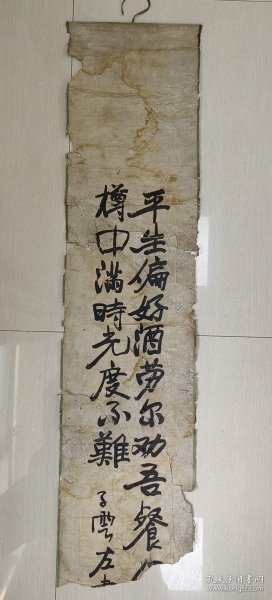 平生偏好酒劳尔劝吾餐
樽中满時光度不難
子雲左
孔夫子旧书网
www.kongfz.com